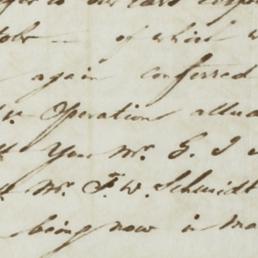 to our last
of which w
again conferred
Operation
you Mr. G. I
Mr. F. W. Schmidt
being now in Ma